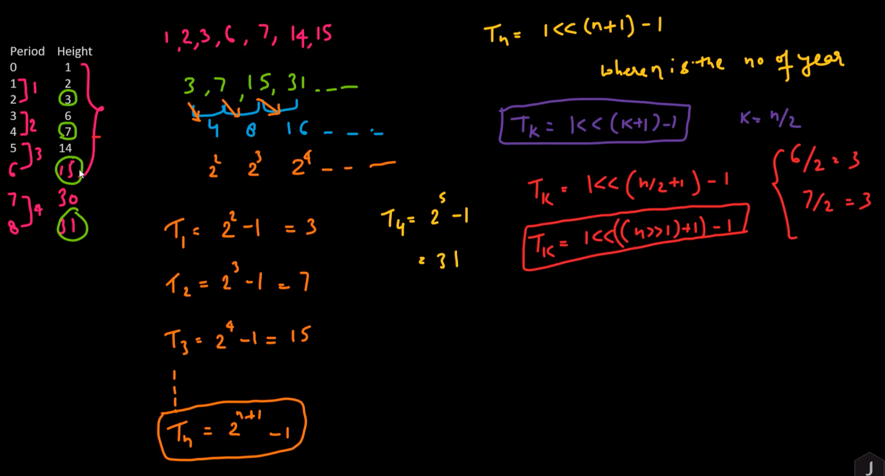 1, 2, 3, 6, 7, 14, 15
Period Height
0 1
1 2
2 3
3 6
4 7
5 14
6 15
7 30
8 31
1
2
3
4
3, 7, 15, 31 . - - -
4 8 16 - - - -
2² 2³ 2⁴ - - -
T₁ = 2² - 1 = 3
T₂ = 2³ - 1 = 7
T₃ = 2⁴ - 1 = 15
Tₙ = 2ⁿ⁺¹ - 1
T₄ = 2⁵ - 1
= 31
Tₙ = 1 << (n+1) - 1
where n is the no of year
Tₖ = 1 << (k+1) - 1
k = n/2
Tₖ = 1 << (n/2 + 1) - 1
Tₖ = 1 << ((n >> 1) + 1) - 1
6/2 = 3
7/2 = 3
J